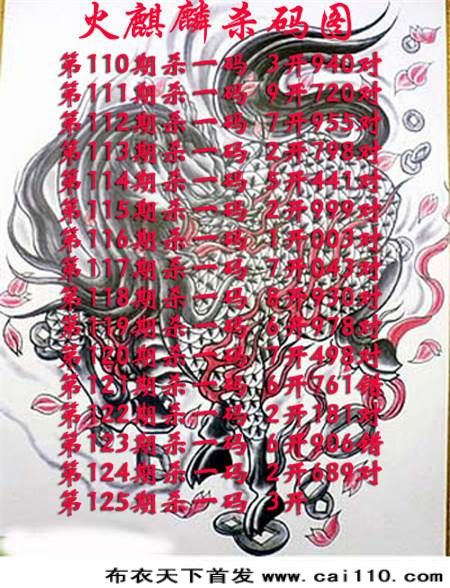 火麒麟杀码图
第110期杀一码 3开940对
第111期杀一码 9开720对
第112期杀一码 7开955对
第113期杀一码 2开798对
第114期杀一码 5开441对
第115期杀一码 2开999对
第116期杀一码 1开003对
第117期杀一码 7开043对
第118期杀一码 8开930对
第119期杀一码 6开978对
第120期杀一码 7开498对
第121期杀一码 6开761错
第122期杀一码 2开181对
第123期杀一码 6开906错
第124期杀一码 2开689对
第125期杀一码 3开
布衣天下首发 www.cai110.com